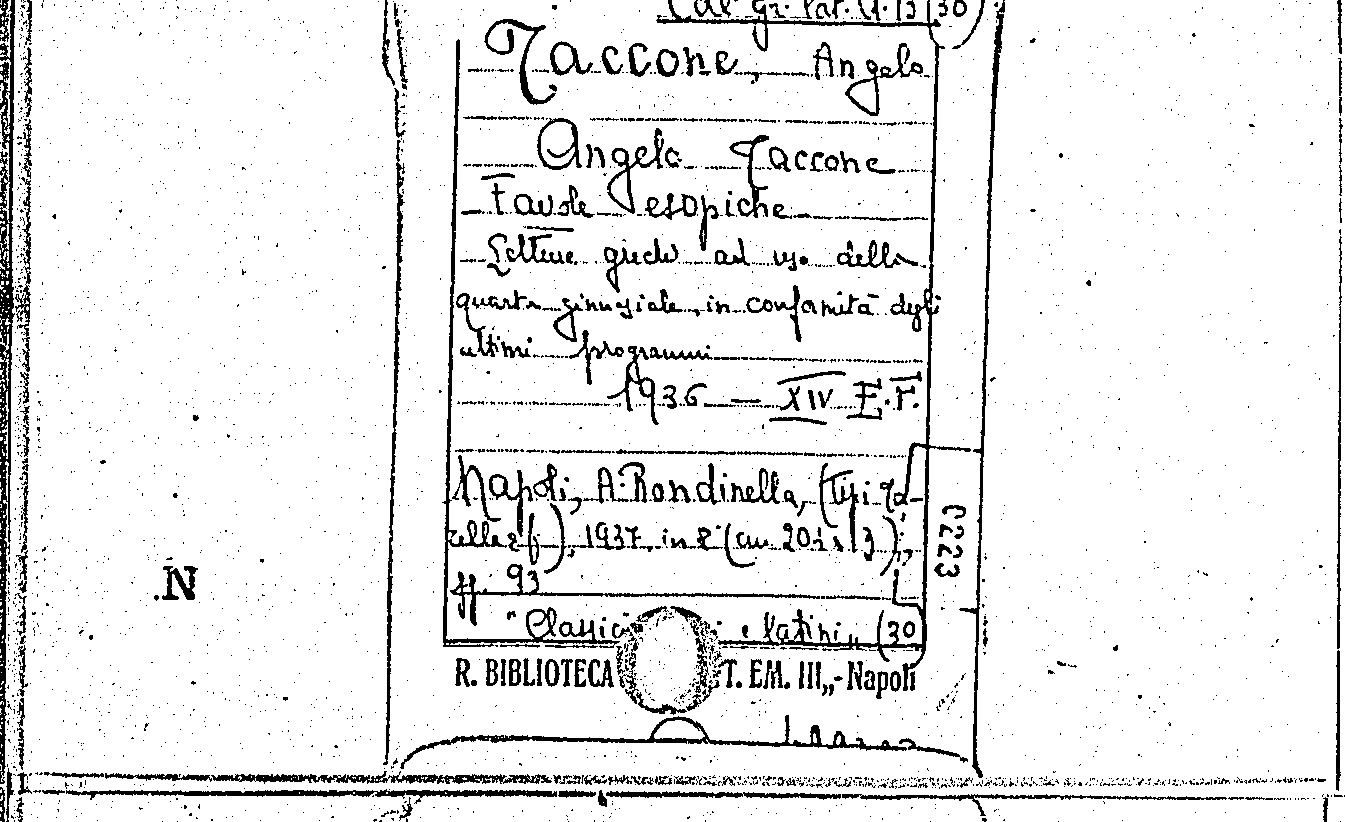 (30)
Taccone, Angelo
Angelo Taccone
Favole esopiche
Letture greche ad uso della
quarta ginnasiale, in conformità degli
ultimi programmi
1936 – XIV E.F.
Napoli, A. Rondinella, (Tip.
), 1937, in 8° (cm 20 13),
pp. 93
"Classici e latini" (30
R. BIBLIOTECA T. EM. III„-Napoli
C223
N